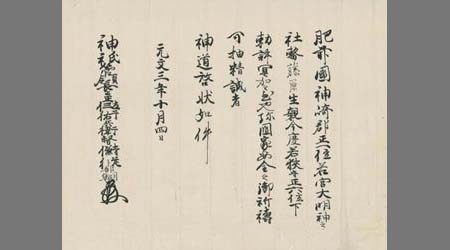 肥前國神埼郡正一位若宮大明神之
社務藤原生親今度若狭守正六位下
勅許冥加至極弥國家安全之御祈祷
可抽精誠者
神道啓状如件
元文三年十月四日
神祇管領長上